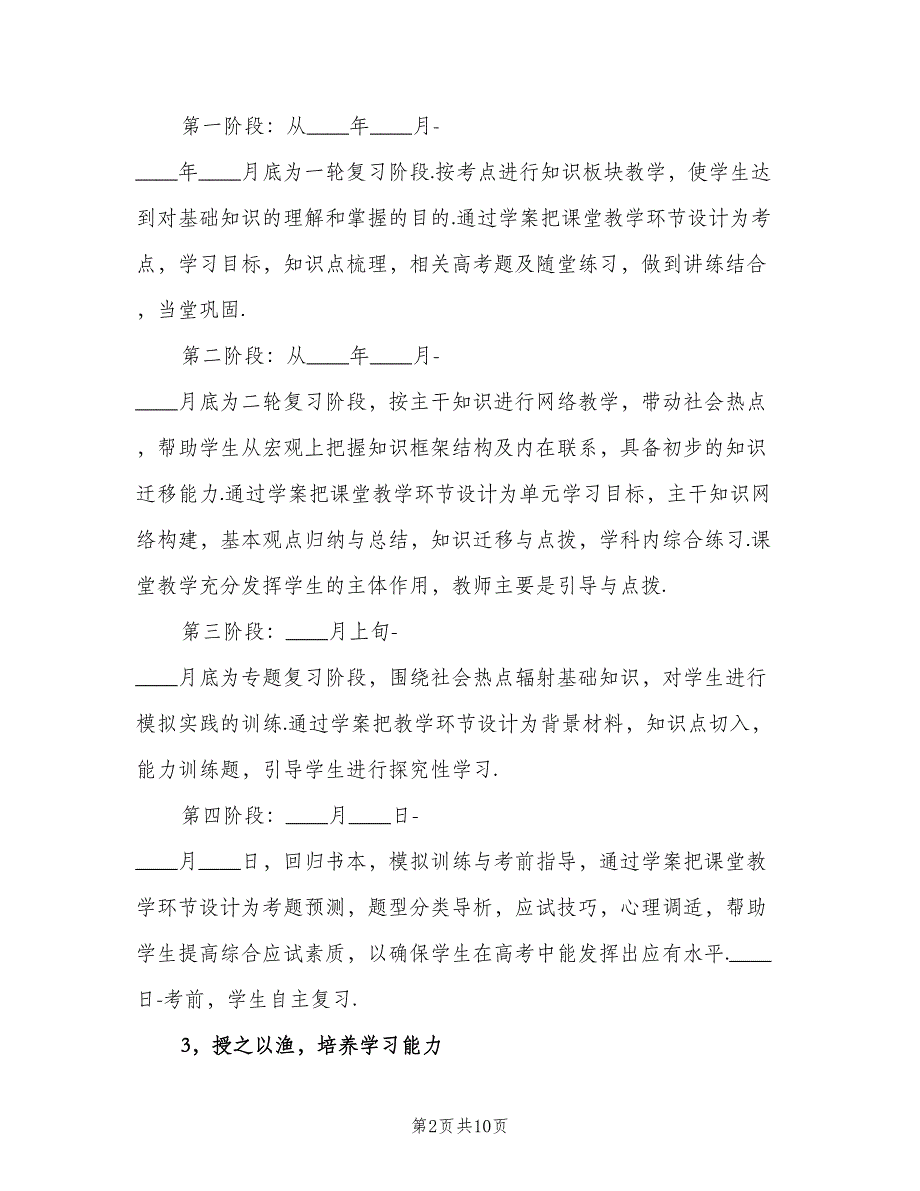 第一阶段：从____年____月-
____年____月底为一轮复习阶段.按考点进行知识板块教学，使学生达
到对基础知识的理解和掌握的目的.通过学案把课堂教学环节设计为考
点，学习目标，知识点梳理，相关高考题及随堂练习，做到讲练结合
，当堂巩固.
第二阶段：从____年____月-
____月底为二轮复习阶段，按主干知识进行网络教学，带动社会热点
，帮助学生从宏观上把握知识框架结构及内在联系，具备初步的知识
迁移能力.通过学案把课堂教学环节设计为单元学习目标，主干知识网
络构建，基本观点归纳与总结，知识迁移与点拨，学科内综合练习.课
堂教学充分发挥学生的主体作用，教师主要是引导与点拨.
第三阶段：____月上旬-
____月底为专题复习阶段，围绕社会热点辐射基础知识，对学生进行
模拟实践的训练.通过学案把教学环节设计为背景材料，知识点切入，
能力训练题，引导学生进行探究性学习.
第四阶段：____月____日-
____月____日，回归书本，模拟训练与考前指导，通过学案把课堂教
学环节设计为考题预测，题型分类导析，应试技巧，心理调适，帮助
学生提高综合应试素质，以确保学生在高考中能发挥出应有水平.____
日-考前，学生自主复习.
3，授之以渔，培养学习能力
第2页共10页